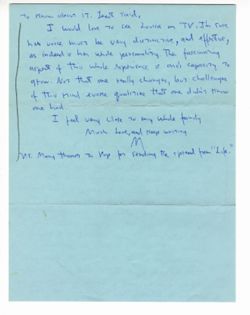 to know about it. Last Tard,
I would love to see Louise on TV. I'm sure
her voice must be very distinctive, and effective,
as indeed is her whole personality. The fascinating
aspect of this whole experience is one's capacity to
grow. Not that one really changes, but challenges
of this kind evoke qualities that one didn't know
one had.
I feel very close to my whole family
Much love, and keep writing
M
P.S. Many thanks to Pop for sending the spread from "Life."